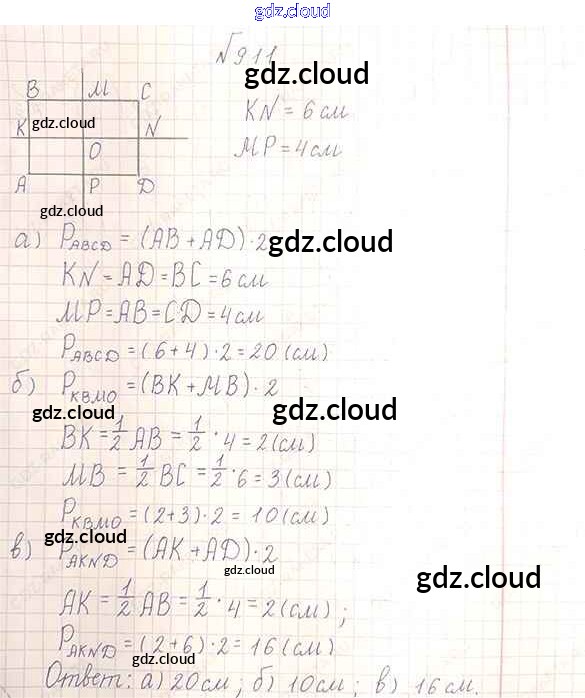 gdz.cloud
№911
gdz.cloud
B M C
KN = 6 см
K gdz.cloud N
O
MP = 4 см
A P D
gdz.cloud
а) P_ABCD = (AB + AD) · 2
gdz.cloud
KN = AD = BC = 6 см
MP = AB = CD = 4 см
P_ABCD = (6 + 4) · 2 = 20 (см)
б) P_KBMO = (BK + MB) · 2
gdz.cloud
gdz.cloud
BK = 1/2 AB = 1/2 · 4 = 2 (см)
MB = 1/2 BC = 1/2 · 6 = 3 (см)
P_KBMO = (2 + 3) · 2 = 10 (см)
в) P_AKND = (AK + AD) · 2
gdz.cloud
gdz.cloud
AK = 1/2 AB = 1/2 · 4 = 2 (см);
P_AKND = (2 + 6) · 2 = 16 (см)
gdz.cloud
Ответ: а) 20 см; б) 10 см; в) 16 см.